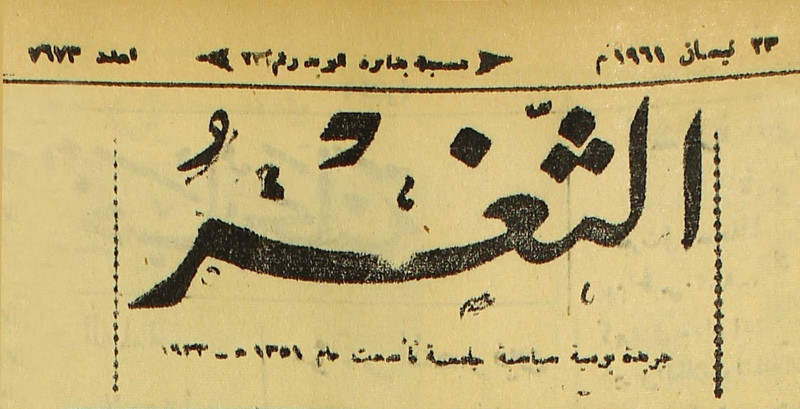 ٢٣ نيسان ١٩٦١ م مسجبة بدائرة البريد رقم ٢٣١ العدد ٧٦٧٣
الثَّغْرُ
جريدة يومية سياسية جامعة تأسست عام ١٣٥١ هـ - ١٩٣٣